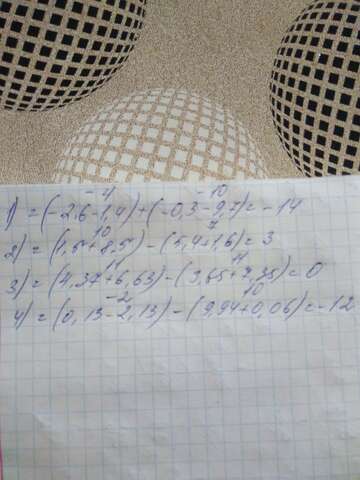 -4 -10
1) = (-2,6-1,4)+(-0,3-9,7)=-14
10 7
2) = (1,5+8,5)-(5,4+1,6)=3
11 11
3) = (4,37+6,63)-(3,65+7,35)=0
-2 10
4) = (0,13-2,13)-(9,94+0,06)=-12